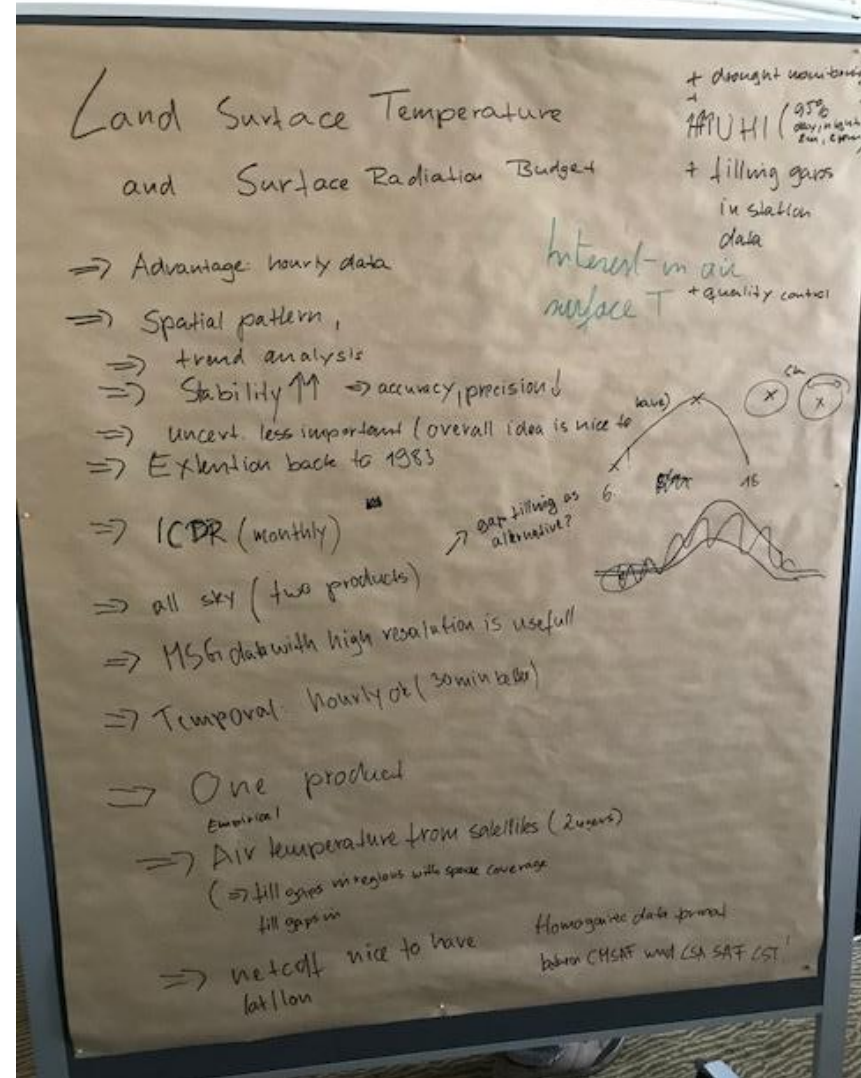 Land Surface Temperature
and Surface Radiation Budget
+ drought monitoring
+
UHI (95%
day, night
+ filling gaps
in station
data
+ quality control
Interest in air
surface T
=> Advantage: hourly data
=> Spatial pattern,
=> trend analysis
=> Stability ↑↑ => accuracy, precision ↓
=> uncert. less important (overall idea is nice to
have)
=> Extention back to 1983
6
18
=> ICDR (monthly)
gap filling as
alternative?
=> all sky (two products)
=> MSG data with high resolution is usefull
=> Temporal: hourly ok (30 min better)
=> One product
Empirical
=> Air temperature from satellites (2 users)
(=> fill gaps in regions with sparse coverage
fill gaps in
=> netcdf nice to have
lat/lon
Homogainec data format
between CMSAF und LSA SAF LST!